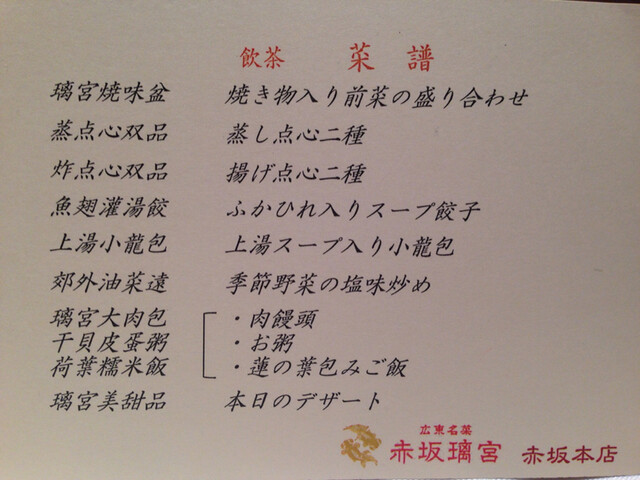 飲茶 菜譜
璃宮焼味盆 焼き物入り前菜の盛り合わせ
蒸点心双品 蒸し点心二種
炸点心双品 揚げ点心二種
魚翅灌湯餃 ふかひれ入りスープ餃子
上湯小龍包 上湯スープ入り小龍包
郊外油菜遠 季節野菜の塩味炒め
璃宮大肉包 ・肉饅頭
干貝皮蛋粥 ・お粥
荷葉糯米飯 ・蓮の葉包みご飯
璃宮美甜品 本日のデザート
広東名菜
赤坂璃宮 赤坂本店